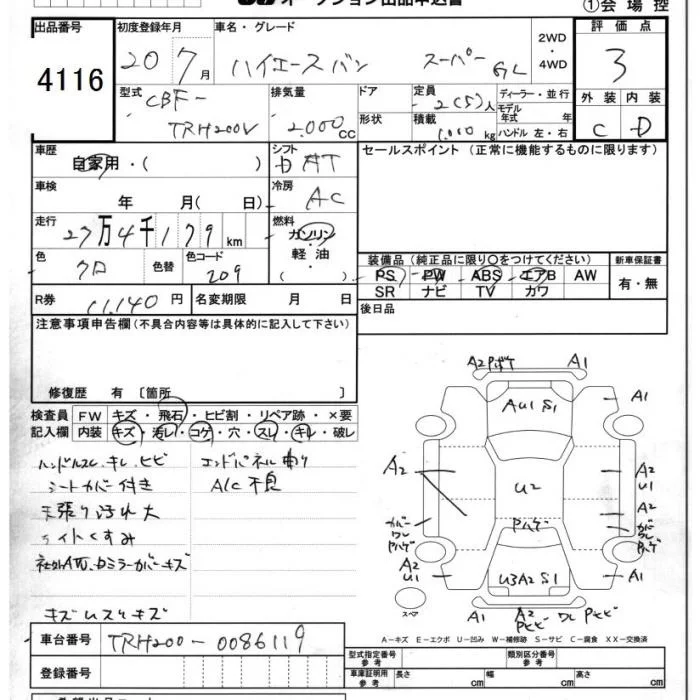 オークション出品申込書 ①会場控
出品番号 初度登録年月 車名・グレード 2WD・4WD 評価点
4116 20 7月 ハイエースバン スーパーGL 3
型式 CBF-TRH200V 排気量 2.000cc ドア 形状 定員 2(5)人 積載 1.000kg ディーラー・並行 モデル年式 年 ハンドル 左・右 外装 C 内装 D
車歴 自家用・( ) シフト AT セールスポイント(正常に機能するものに限ります)
車検 年 月( 日) 冷房 AC
走行 27万4千179km 燃料 ガソリン・軽油・( )
色 クロ 色替 色コード 209 装備品(純正品に限り〇をつけてください) 新車保証書
PS PW ABS エアB AW 有・無
SR ナビ TV カワ
R券 11.140円 名変期限 月 日 後日品
注意事項申告欄(不具合内容等は具体的に記入して下さい)
修復歴 有〔箇所 〕
検査員記入欄 FW キズ・飛石・ヒビ割・リペア跡・×要
内装 キズ・汚レ・コゲ・穴・スレ・キレ・破レ
ハンドルスレ、キレ、ヒビ エンドパネル曲り
シートカバー付き A/C不良
天張り汚れ大
ライトくすみ
社外AW、ドミラーカバーキズ
キズ
A2 Pボケ A1
AU1 S1 A1
A2 U2 A2 U1
A2
カバーワレ Pハゲ Pハゲ カバーワレ Pハゲ
A2 U1 U3A2S1 A1
スペア A1 A2 Pヒビ ワレ Pヒビ
A-キズ E-エクボ U-凹み W-補修跡 S-サビ C-腐食 XX-交換済
車台番号 TRH200-0086119 型式指定番号 参考 類別区分番号 参考
登録番号 車庫証明用 参考 長さ cm 幅 cm 高さ cm